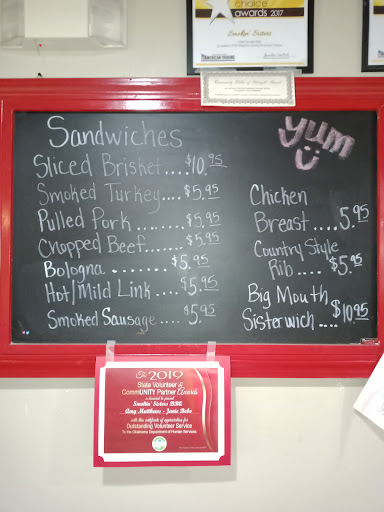 choice
awards 2017
Smokin' Sisters
Sandwiches
yum
Sliced Brisket....$10.95
Smoked Turkey....$5.95
Pulled Pork.......$5.95
Chopped Beef......$5.95
Bologna........$5.95
Hot/Mild Link....$5.95
Smoked Sausage....$5.95
Chicken
Breast....5.95
Country Style
Rib....$5.95
Big Mouth
Sisterwich....$10.95
The 2019
State Volunteer &
CommUNITY Partner Awards
is honored to present
Smokin' Sisters BBQ
Amy Matthews - Janie Bebo
with this certificate of appreciation for
Outstanding Volunteer Service
To the Oklahoma Department of Human Services